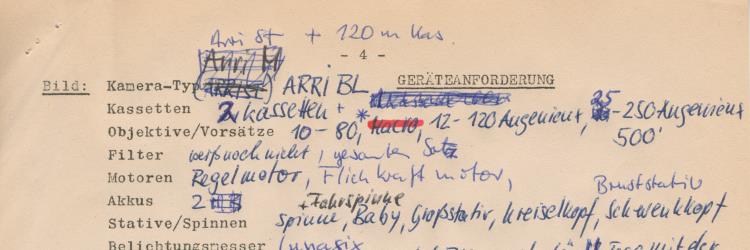 Arri St + 120 m Kas.
- 4 -
Arri M
Bild: Kamera-Typ (ARRIST) ARRI BL GERÄTEANFORDERUNG
Kassetten 2 Kassetten +
Objektive/Vorsätze 10-80, *Macro, 12-120 Angenieux, 25-250 Angenieux
500'
Filter weiß noch nicht, gesamten Satz
Motoren Regelmotor, Fliehkraftmotor, Bruststativ
Akkus 2 + Fahrspinne
Stative/Spinnen Spinne, Baby, Großstativ, Kreiselkopf, Schwenkkopf
Belichtungsmesser Lunasix